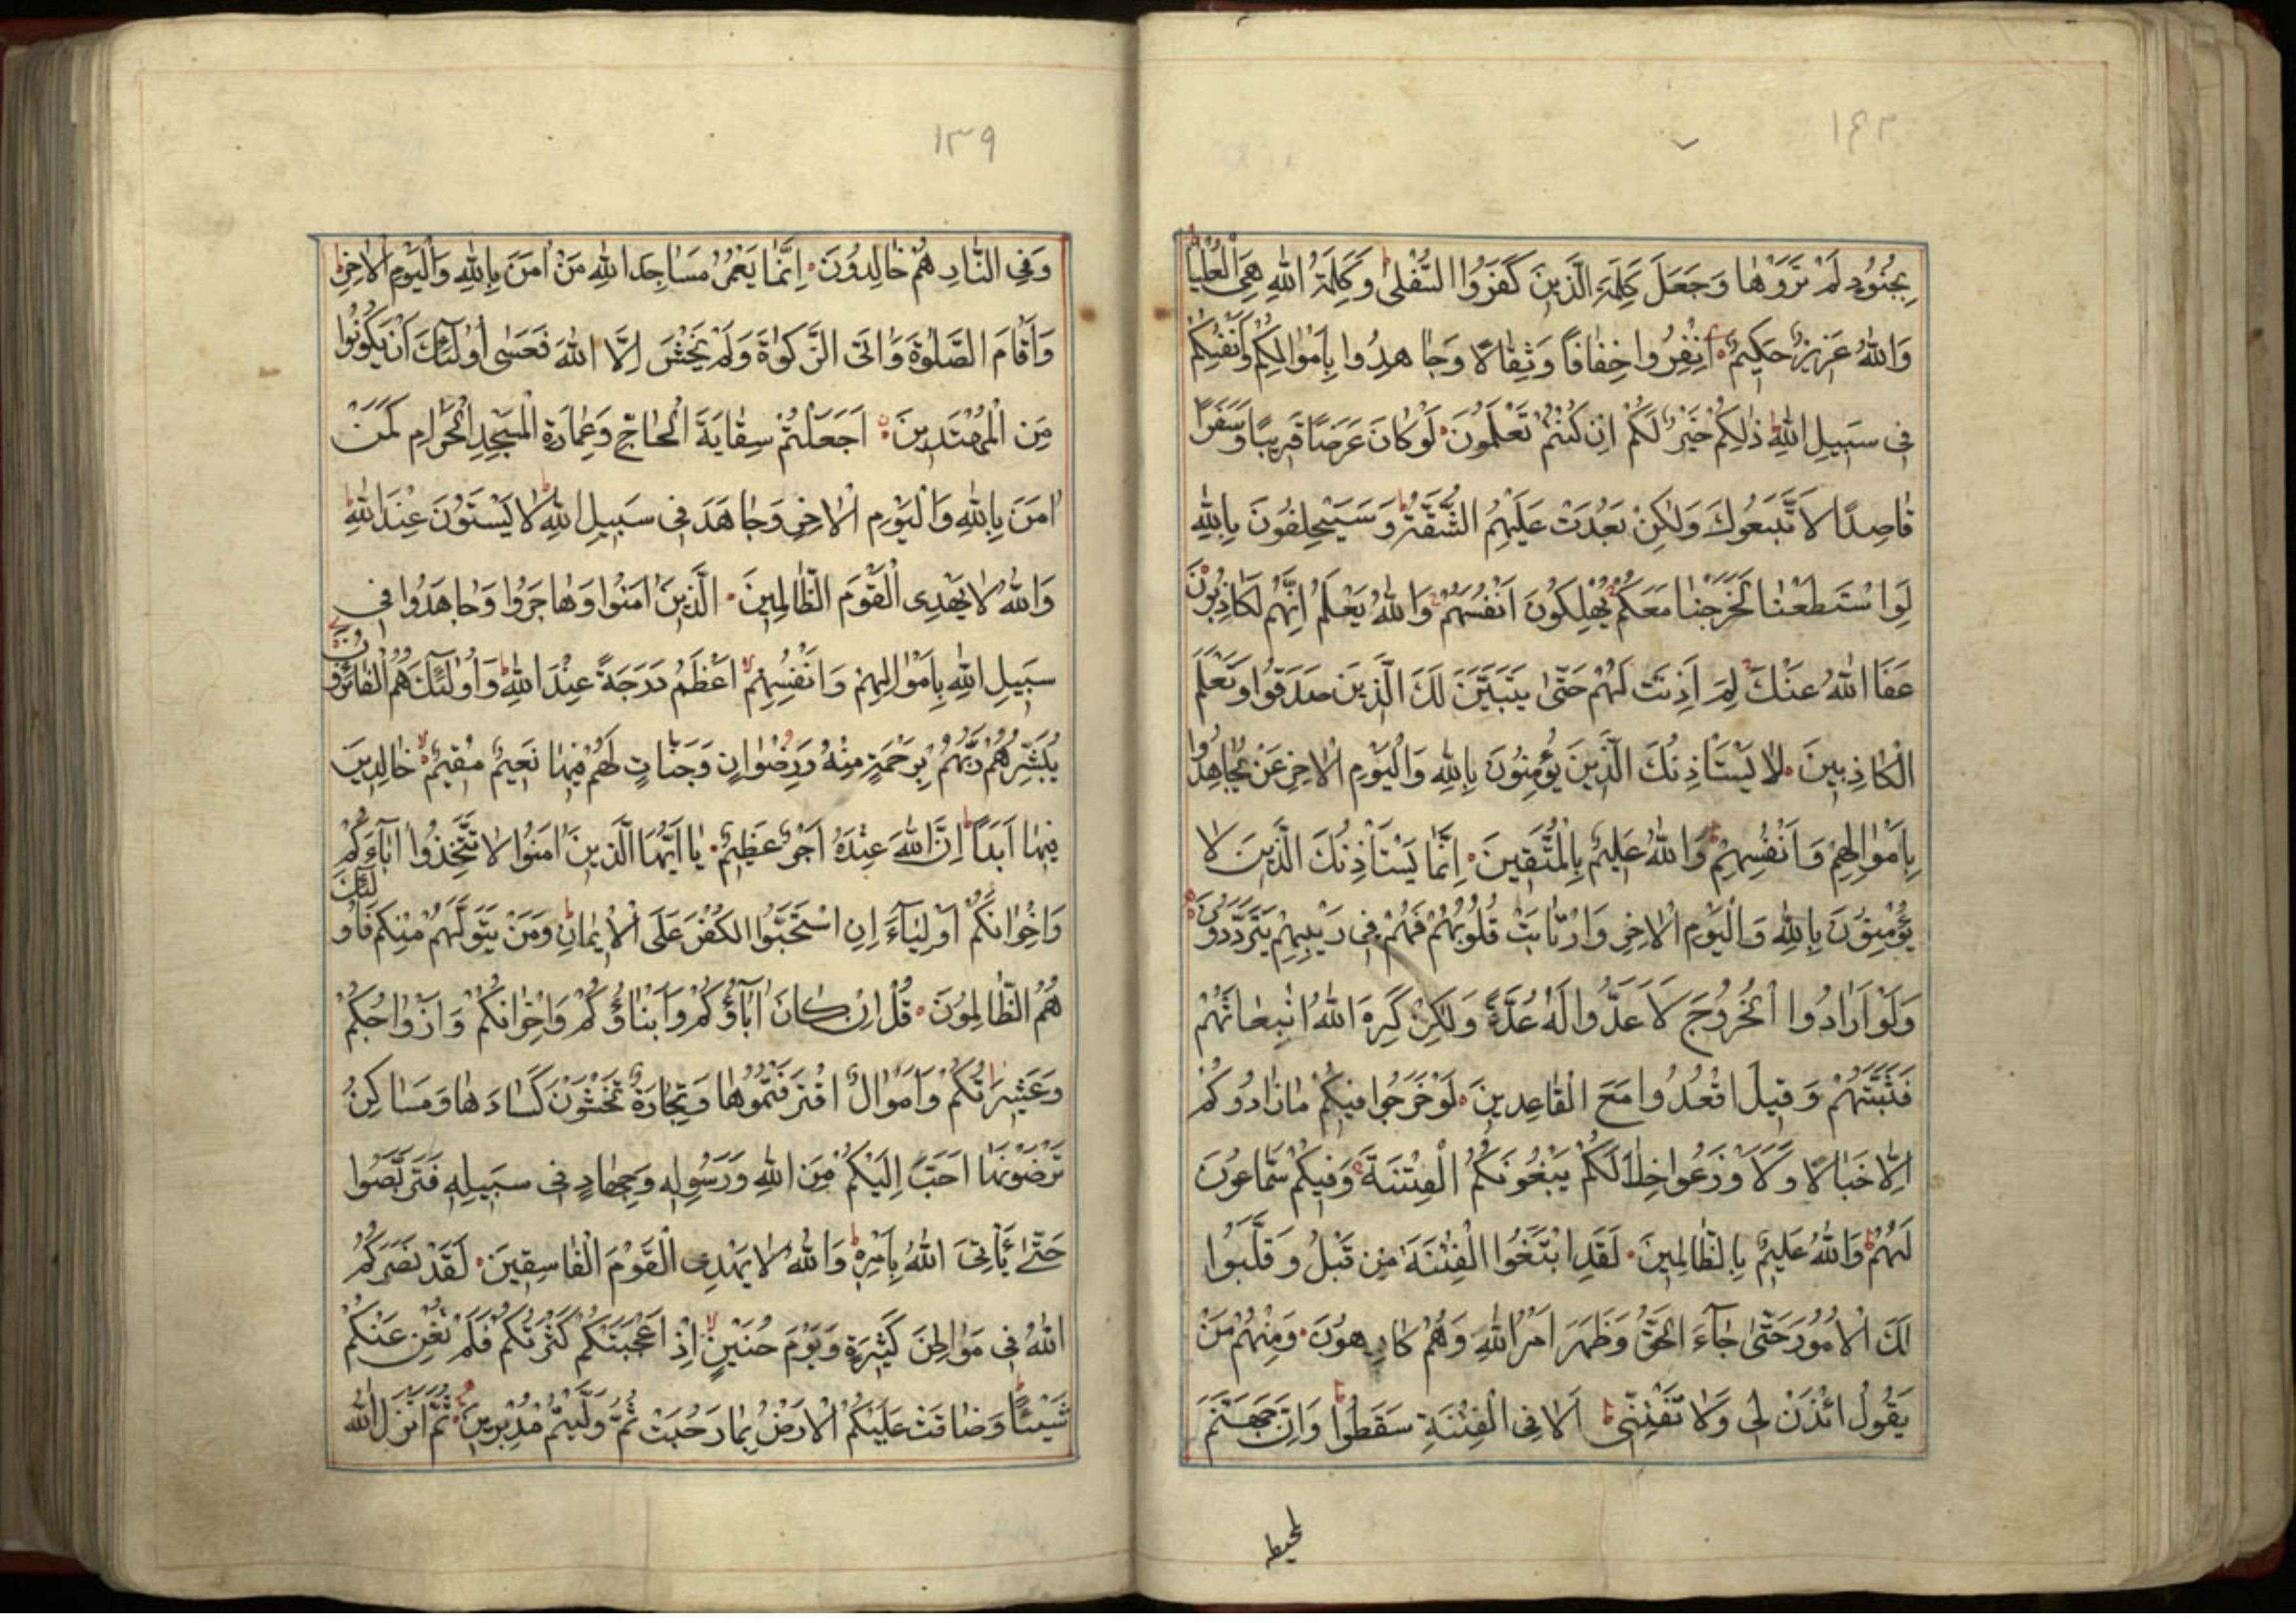 ١٤٢
بِجُنُودٍ لَمْ تَرَوْهَا وَجَعَلَ كَلِمَةَ الَّذِينَ كَفَرُوا السُّفْلٰى وَكَلِمَةُ اللهِ هِيَ الْعُلْيَا
وَاللهُ عَزِيزٌ حَكِيمٌ اِنْفِرُوا خِفَافًا وَثِقَالًا وَجَاهِدُوا بِاَمْوَالِكُمْ وَاَنْفُسِكُمْ
فِى سَبِيلِ اللهِ ذٰلِكُمْ خَيْرٌ لَكُمْ اِنْ كُنْتُمْ تَعْلَمُونَ لَوْ كَانَ عَرَضًا قَرِيبًا وَسَفَرًا
قَاصِدًا لَاتَّبَعُوكَ وَلٰكِنْ بَعُدَتْ عَلَيْهِمُ الشُّقَّةُ وَسَيَحْلِفُونَ بِاللهِ
لَوِ اسْتَطَعْنَا لَخَرَجْنَا مَعَكُمْ يُهْلِكُونَ اَنْفُسَهُمْ وَاللهُ يَعْلَمُ اِنَّهُمْ لَكَاذِبُونَ
عَفَا اللهُ عَنْكَ لِمَ اَذِنْتَ لَهُمْ حَتّٰى يَتَبَيَّنَ لَكَ الَّذِينَ صَدَقُوا وَتَعْلَمَ
الْكَاذِبِينَ لَا يَسْتَأْذِنُكَ الَّذِينَ يُؤْمِنُونَ بِاللهِ وَالْيَوْمِ الْاٰخِرِ عَنْ يُجَاهِدُوا
بِاَمْوَالِهِمْ وَاَنْفُسِهِمْ وَاللهُ عَلِيمٌ بِالْمُتَّقِينَ اِنَّمَا يَسْتَأْذِنُكَ الَّذِينَ لَا
يُؤْمِنُونَ بِاللهِ وَالْيَوْمِ الْاٰخِرِ وَارْتَابَتْ قُلُوبُهُمْ فَهُمْ فِى رَيْبِهِمْ يَتَرَدَّدُونَ
وَلَوْ اَرَادُوا الْخُرُوجَ لَاَعَدُّوا لَهُ عُدَّةً وَلٰكِنْ كَرِهَ اللهُ انْبِعَاثَهُمْ
فَثَبَّتَهُمْ وَقِيلَ اقْعُدُوا مَعَ الْقَاعِدِينَ لَوْ خَرَجُوا فِيكُمْ مَا زَادُوكُمْ
اِلَّا خَبَالًا وَلَاَوْضَعُوا خِلَالَكُمْ يَبْغُونَكُمُ الْفِتْنَةَ وَفِيكُمْ سَمَّاعُونَ
لَهُمْ وَاللهُ عَلِيمٌ بِالظَّالِمِينَ لَقَدِ ابْتَغَوُا الْفِتْنَةَ مِنْ قَبْلُ وَقَلَّبُوا
لَكَ الْاُمُورَ حَتّٰى جَاءَ الْحَقُّ وَظَهَرَ اَمْرُ اللهِ وَهُمْ كَارِهُونَ وَمِنْهُمْ مَنْ
يَقُولُ ائْذَنْ لِى وَلَا تَفْتِنِّى اَلَا فِى الْفِتْنَةِ سَقَطُوا وَاِنَّ جَهَنَّمَ
لمحيطة
١٣٩
وَفِى النَّارِ هُمْ خَالِدُونَ اِنَّمَا يَعْمُرُ مَسَاجِدَ اللهِ مَنْ اٰمَنَ بِاللهِ وَالْيَوْمِ الْاٰخِرِ
وَاَقَامَ الصَّلٰوةَ وَاٰتَى الزَّكٰوةَ وَلَمْ يَخْشَ اِلَّا اللهَ فَعَسٰى اُولٰئِكَ اَنْ يَكُونُوا
مِنَ الْمُهْتَدِينَ اَجَعَلْتُمْ سِقَايَةَ الْحَاجِّ وَعِمَارَةَ الْمَسْجِدِ الْحَرَامِ كَمَنْ
اٰمَنَ بِاللهِ وَالْيَوْمِ الْاٰخِرِ وَجَاهَدَ فِى سَبِيلِ اللهِ لَا يَسْتَوُونَ عِنْدَ اللهِ
وَاللهُ لَا يَهْدِى الْقَوْمَ الظَّالِمِينَ اَلَّذِينَ اٰمَنُوا وَهَاجَرُوا وَجَاهَدُوا فِى
سَبِيلِ اللهِ بِاَمْوَالِهِمْ وَاَنْفُسِهِمْ اَعْظَمُ دَرَجَةً عِنْدَ اللهِ وَاُولٰئِكَ هُمُ الْفَائِزُونَ
يُبَشِّرُهُمْ رَبُّهُمْ بِرَحْمَةٍ مِنْهُ وَرِضْوَانٍ وَجَنَّاتٍ لَهُمْ فِيهَا نَعِيمٌ مُقِيمٌ خَالِدِينَ
فِيهَا اَبَدًا اِنَّ اللهَ عِنْدَهُ اَجْرٌ عَظِيمٌ يَا اَيُّهَا الَّذِينَ اٰمَنُوا لَا تَتَّخِذُوا اٰبَاءَكُمْ
وَاِخْوَانَكُمْ اَوْلِيَاءَ اِنِ اسْتَحَبُّوا الْكُفْرَ عَلَى الْاِيمَانِ وَمَنْ يَتَوَلَّهُمْ مِنْكُمْ فَاُولٰئِكَ
هُمُ الظَّالِمُونَ قُلْ اِنْ كَانَ اٰبَاؤُكُمْ وَاَبْنَاؤُكُمْ وَاِخْوَانُكُمْ وَاَزْوَاجُكُمْ
وَعَشِيرَاتُكُمْ وَاَمْوَالٌ اقْتَرَفْتُمُوهَا وَتِجَارَةٌ تَخْشَوْنَ كَسَادَهَا وَمَسَاكِنُ
تَرْضَوْنَهَا اَحَبَّ اِلَيْكُمْ مِنَ اللهِ وَرَسُولِهِ وَجِهَادٍ فِى سَبِيلِهِ فَتَرَبَّصُوا
حَتّٰى يَأْتِىَ اللهُ بِاَمْرِهِ وَاللهُ لَا يَهْدِى الْقَوْمَ الْفَاسِقِينَ لَقَدْ نَصَرَكُمُ
اللهُ فِى مَوَاطِنَ كَثِيرَةٍ وَيَوْمَ حُنَيْنٍ اِذْ اَعْجَبَتْكُمْ كَثْرَتُكُمْ فَلَمْ تُغْنِ عَنْكُمْ
شَيْئًا وَضَاقَتْ عَلَيْكُمُ الْاَرْضُ بِمَا رَحُبَتْ ثُمَّ وَلَّيْتُمْ مُدْبِرِينَ ثُمَّ اَنْزَلَ اللهُ